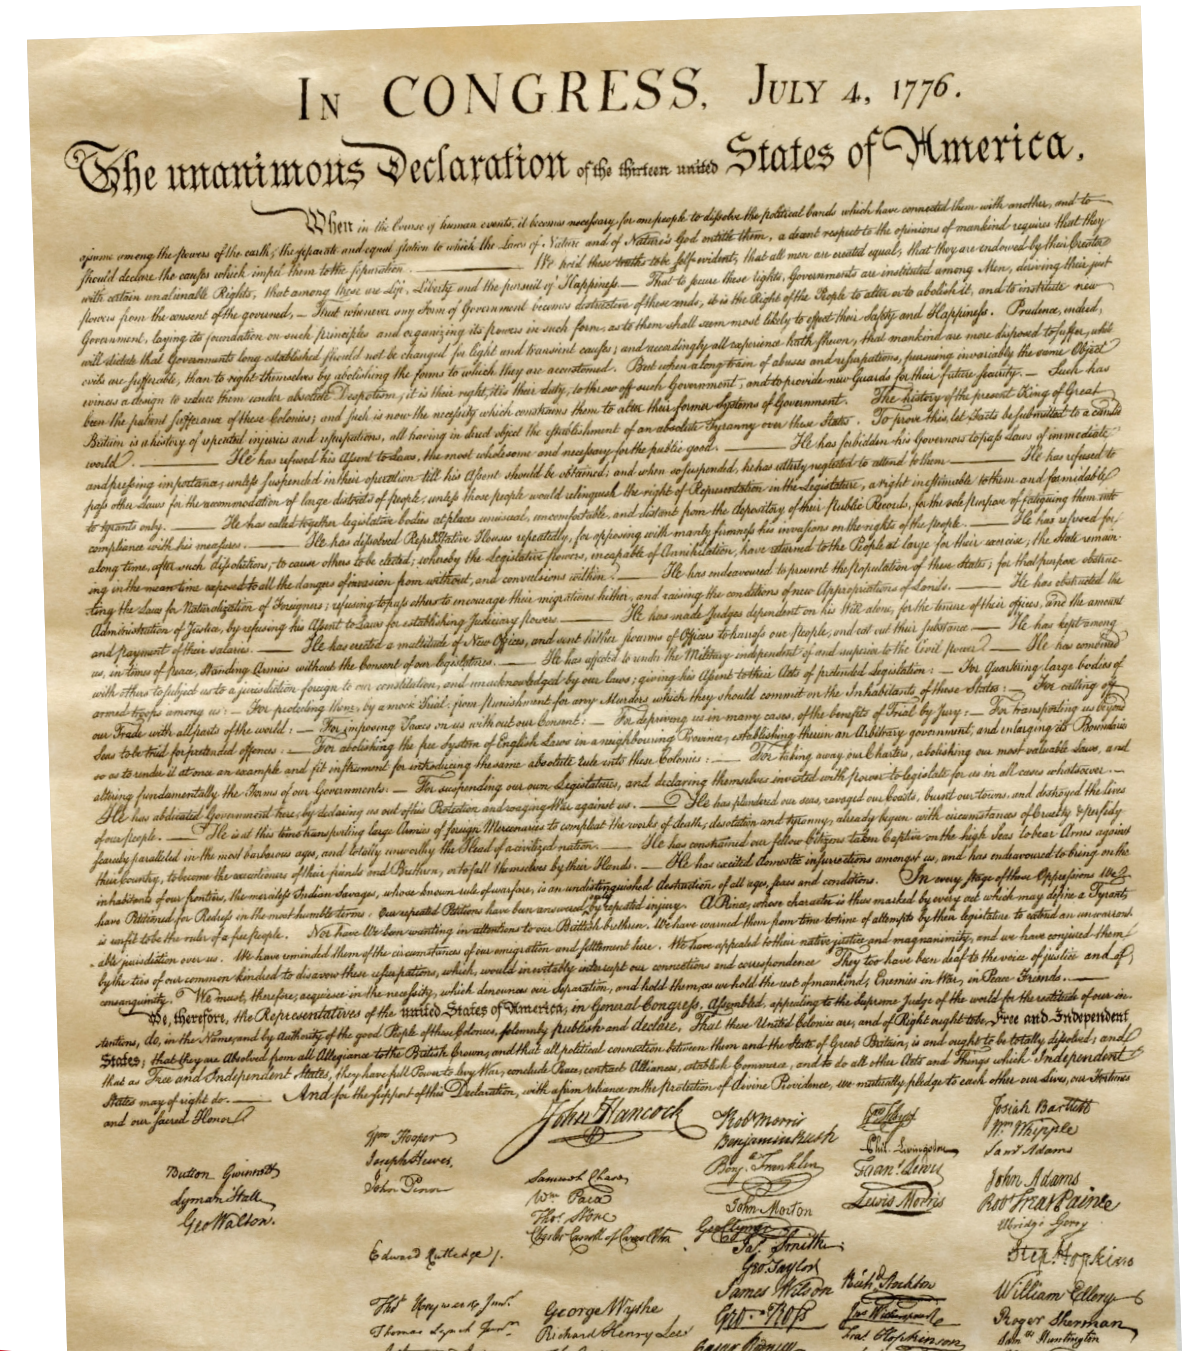 IN CONGRESS, JULY 4, 1776.
The unanimous Declaration of the thirteen united States of America,
When in the Course of human events, it becomes necessary for one people to dissolve the political bands which have connected them with another, and to
assume among the powers of the earth, the separate and equal station to which the Laws of Nature and of Nature's God entitle them, a decent respect to the opinions of mankind requires that they
should declare the causes which impel them to the separation. We hold these truths to be self-evident, that all men are created equal, that they are endowed by their Creator
with certain unalienable Rights, that among these are Life, Liberty and the pursuit of Happiness. — That to secure these rights, Governments are instituted among Men, deriving their just
powers from the consent of the governed, — That whenever any Form of Government becomes destructive of these ends, it is the Right of the People to alter or to abolish it, and to institute new
Government, laying its foundation on such principles and organizing its powers in such form, as to them shall seem most likely to effect their Safety and Happiness. Prudence, indeed,
will dictate that Governments long established should not be changed for light and transient causes; and accordingly all experience hath shewn, that mankind are more disposed to suffer, while
evils are sufferable, than to right themselves by abolishing the forms to which they are accustomed. But when a long train of abuses and usurpations, pursuing invariably the same Object
evinces a design to reduce them under absolute Despotism, it is their right, it is their duty, to throw off such Government, and to provide new Guards for their future security. — Such has
been the patient sufferance of these Colonies; and such is now the necessity which constrains them to alter their former Systems of Government. The history of the present King of Great
Britain is a history of repeated injuries and usurpations, all having in direct object the establishment of an absolute Tyranny over these States. To prove this, let Facts be submitted to a candid
world. He has refused his Assent to Laws, the most wholesome and necessary for the public good. He has forbidden his Governors to pass Laws of immediate
and pressing importance, unless suspended in their operation till his Assent should be obtained; and when so suspended, he has utterly neglected to attend to them. He has refused to
pass other Laws for the accommodation of large districts of people, unless those people would relinquish the right of Representation in the Legislature, a right inestimable to them and formidable
to tyrants only. He has called together legislative bodies at places unusual, uncomfortable, and distant from the depository of their Public Records, for the sole purpose of fatiguing them into
compliance with his measures. He has dissolved Representative Houses repeatedly, for opposing with manly firmness his invasions on the rights of the people. He has refused for
a long time, after such dissolutions, to cause others to be elected; whereby the Legislative Powers, incapable of Annihilation, have returned to the People at large for their exercise; the State remain-
ing in the mean time exposed to all the dangers of invasion from without, and convulsions within. He has endeavoured to prevent the Population of these States; for that purpose obstruc-
ting the Laws for Naturalization of Foreigners; refusing to pass others to encourage their migrations hither, and raising the conditions of new Appropriations of Lands. He has obstructed the
Administration of Justice, by refusing his Assent to Laws for establishing Judiciary Powers. He has made Judges dependent on his Will alone, for the tenure of their offices, and the amount
and payment of their salaries. He has erected a multitude of New Offices, and sent hither swarms of Officers to harrass our people, and eat out their substance. He has kept among
us, in times of peace, Standing Armies without the Consent of our legislatures. He has affected to render the Military independent of and superior to the Civil power. He has combined
with others to subject us to a jurisdiction foreign to our constitution, and unacknowledged by our laws; giving his Assent to their Acts of pretended Legislation: — For Quartering large bodies of
armed troops among us: — For protecting them, by a mock Trial, from punishment for any Murders which they should commit on the Inhabitants of these States: — For cutting off
our Trade with all parts of the world: — For imposing Taxes on us without our Consent: — For depriving us in many cases, of the benefits of Trial by Jury: — For transporting us beyond
Seas to be tried for pretended offences: — For abolishing the free System of English Laws in a neighbouring Province, establishing therein an Arbitrary government, and enlarging its Boundaries
so as to render it at once an example and fit instrument for introducing the same absolute rule into these Colonies: — For taking away our Charters, abolishing our most valuable Laws, and
altering fundamentally the Forms of our Governments: — For suspending our own Legislatures, and declaring themselves invested with power to legislate for us in all cases whatsoever. —
He has abdicated Government here, by declaring us out of his Protection and waging War against us. He has plundered our seas, ravaged our Coasts, burnt our towns, and destroyed the lives
of our people. He is at this time transporting large Armies of foreign Mercenaries to compleat the works of death, desolation and tyranny, already begun with circumstances of Cruelty & perfidy
scarcely paralleled in the most barbarous ages, and totally unworthy the Head of a civilized nation. He has constrained our fellow Citizens taken Captive on the high Seas to bear Arms against
their Country, to become the executioners of their friends and Brethren, or to fall themselves by their Hands. He has excited domestic insurrections amongst us, and has endeavoured to bring on the
inhabitants of our frontiers, the merciless Indian Savages, whose known rule of warfare, is an undistinguished destruction of all ages, sexes and conditions. In every stage of these Oppressions We
have Petitioned for Redress in the most humble terms: Our repeated Petitions have been answered only by repeated injury. A Prince, whose character is thus marked by every act which may define a Tyrant,
is unfit to be the ruler of a free people. Nor have We been wanting in attentions to our Brittish brethren. We have warned them from time to time of attempts by their legislature to extend an unwarrant-
able jurisdiction over us. We have reminded them of the circumstances of our emigration and settlement here. We have appealed to their native justice and magnanimity, and we have conjured them
by the ties of our common kindred to disavow these usurpations, which, would inevitably interrupt our connections and correspondence They too have been deaf to the voice of justice and of
consanguinity. We must, therefore, acquiesce in the necessity, which denounces our Separation, and hold them, as we hold the rest of mankind, Enemies in War, in Peace Friends.
We, therefore, the Representatives of the united States of America, in General Congress, Assembled, appealing to the Supreme Judge of the world for the rectitude of our in-
tentions, do, in the Name, and by Authority of the good People of these Colonies, solemnly publish and declare, That these United Colonies are, and of Right ought to be, Free and Independent
States; that they are Absolved from all Allegiance to the British Crown, and that all political connection between them and the State of Great Britain, is and ought to be totally dissolved; and
that as Free and Independent States, they have full Power to levy War, conclude Peace, contract Alliances, establish Commerce, and to do all other Acts and Things which Independent
States may of right do. And for the support of this Declaration, with a firm reliance on the protection of divine Providence, we mutually pledge to each other our Lives, our Fortunes
and our sacred Honor
Button Gwinnett
Lyman Hall
Geo Walton.
Wm Hooper
Joseph Hewes,
John Penn
Edward Rutledge /.
Thos Heyward Junr.
Thomas Lynch Junr.
John Hancock
Samuel Chase
Wm. Paca
Thos. Stone
Charles Carroll of Carrollton
George Wythe
Richard Henry Lee
Robt Morris
Benjamin Rush
Benj. Franklin
John Morton
Geo Clymer
Jas. Smith
Geo. Taylor
James Wilson
Geo. Ross
Caesar Rodney
Wm Floyd
Phil. Livingston
Frans. Lewis
Lewis Morris
Richd. Stockton
Jno Witherspoon
Fras. Hopkinson
Josiah Bartlett
Wm. Whipple
Saml Adams
John Adams
Robt Treat Paine
Elbridge Gerry
Step. Hopkins
William Ellery
Roger Sherman
Saml Huntington